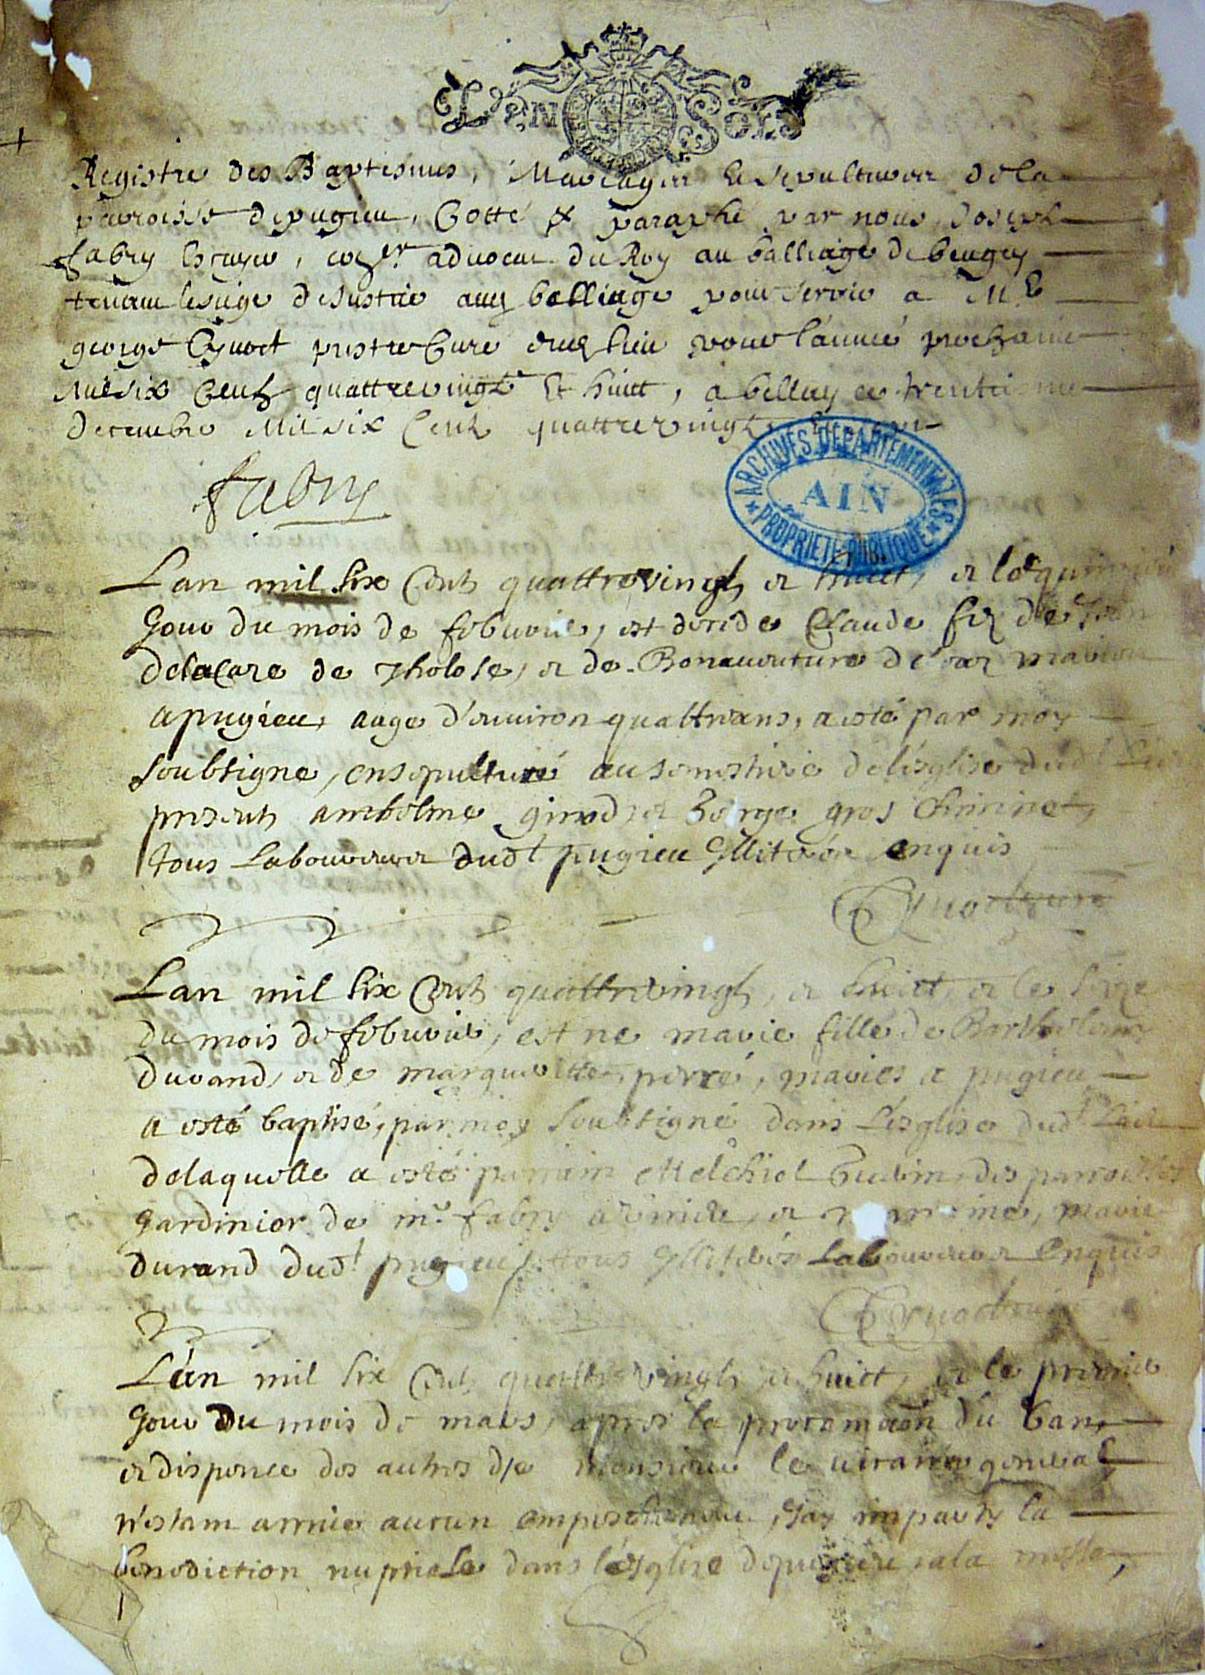 Registre des Baptesmes, Mariages et Sepultures de la
parroisse de pugieu, Cotté & paraphé par nous Joseph
fabry Escuyer, coner advocat du Roy au balliage de beugey
tenant le siege de Justice audt balliage pour servir a Mre
george Cynoct prestre Curé dudt lieu pour l'année prochaine
Mil six Centz quattrevingt Et huict, a belley ce trentiesme
decembre Mil six Centz quattrevingt
fabry
ARCHIVES DEPARTEMENTALES
AIN
PROPRIETE PUBLIQUE
Lan mil six Cents quattrevingts et huict, et le quinzie
Jour du mois de febvrier, est decede Claude fiz de
delacare de Tholose, et de Bonaventure de mariés
a pugieu, aage d'environ quattre ans, a esté par moy
soubsigne, ensepulturé au semestiere de lésglise dudt lieu
presents anthelme girod et george gros Chininet,
tous Laboureurs dudt pugieu Illiteres enquis
Lan mil six Cents quattrevingts, et huict, et le seize
du mois de febvrier, est ne marie fille de Bartholome
durand, et de margueritte perré, mariés a pugieu
a esté baptisé, par moy soubsigné dans Lésglise dudt Lieu
de laquelle a esté parrain Melchiol des parroisses
Jardinier de mr fabry a et marraine, marie
durand dudt pugieu, tous Illiteres Laboureurs Enquis
Lán mil six Cents quattrevingts et huict, et le premier
Jour du mois de mars, apres la proclamaõn du ban,
et dispence des autres de monsieur le vicaire general,
nestant arrivé aucun empeschement, Jay imparty la
benediction nuptiale dans lésglise de pugieu a la messe,